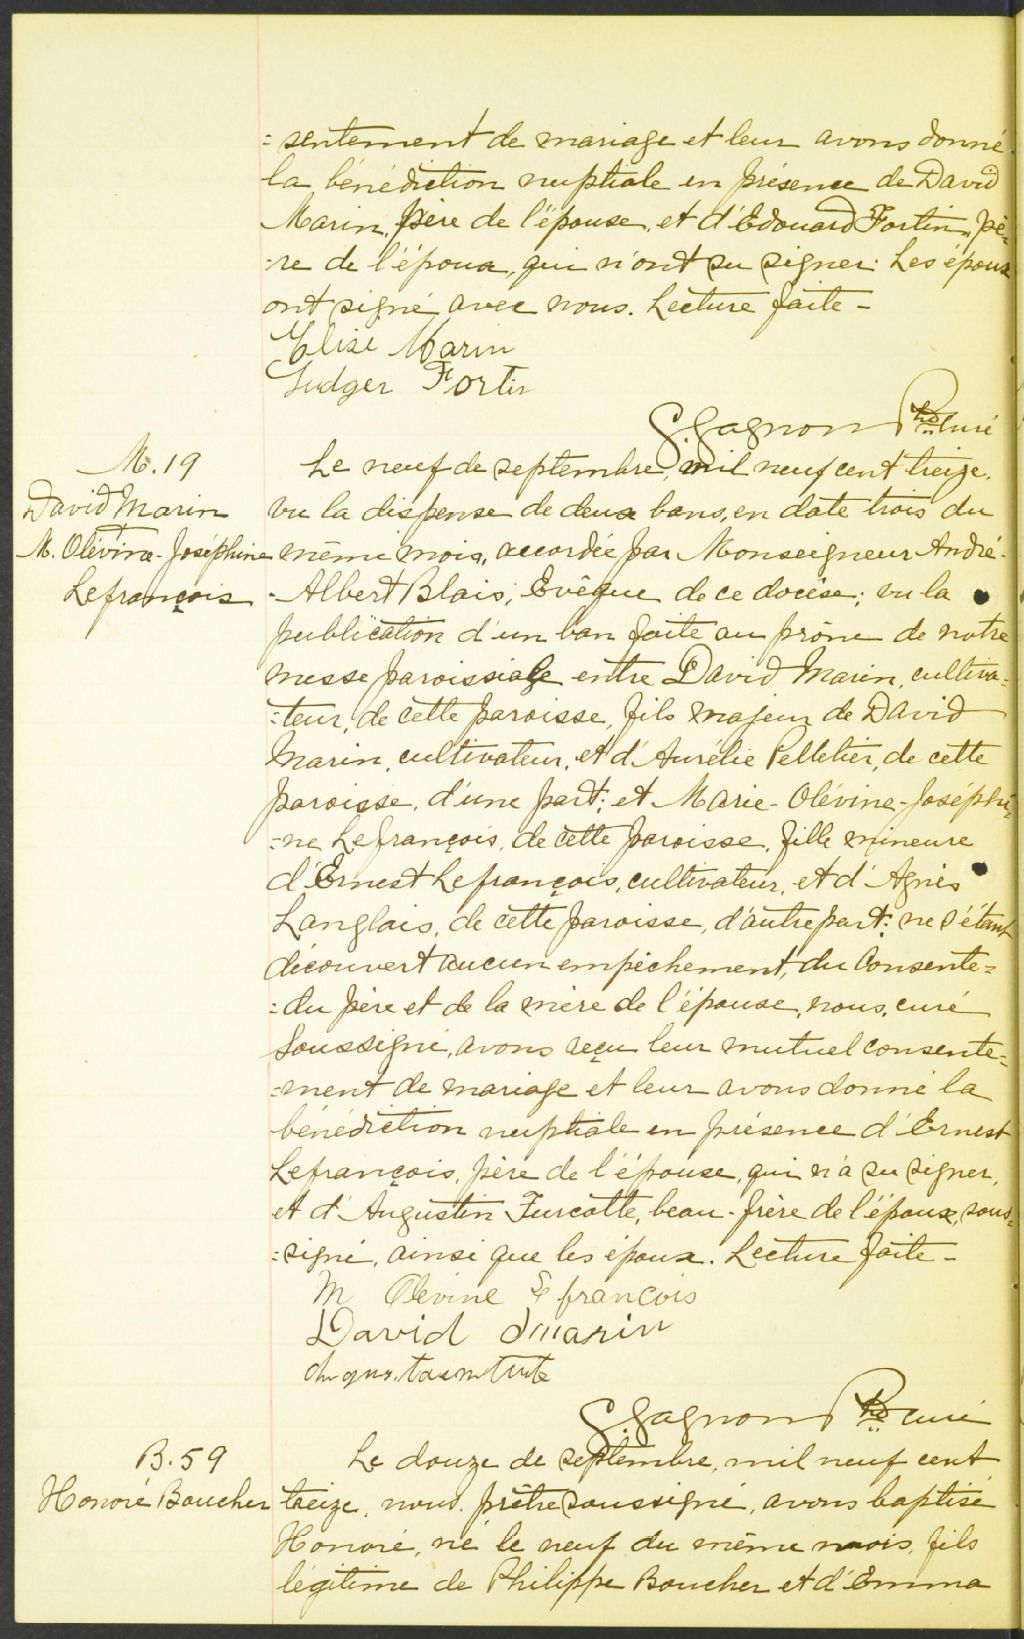 =sentement de mariage et leur avons donné
la bénédiction nuptiale en présence de David
Marin, père de l'épouse, et d'Edouard Fortin, pè-
-re de l'époux, qui n'ont su signer. Les époux
ont signé avec nous. Lecture faite -
Elise Marin
Ludger Fortin
G. Gagnon Ptre curé
M. 19
David Marin
M. Olévina-Joséphine
Lefrançois
Le neuf de septembre, mil neuf cent treize,
vu la dispense de deux bans, en date trois du
même mois, accordée par Monseigneur André-
-Albert Blais, Evêque de ce docèse; vu la
publication d'un ban faite au prône de notre
messe paroissiale entre David Marin, cultiva-
=teur, de cette paroisse, fils majeur de David
Marin, cultivateur, et d'Aurélie Pelletier, de cette
paroisse, d'une part; et Marie-Olévine-Joséphi-
=ne Lefrançois, de cette paroisse, fille mineure
d'Ernest Lefrançois, cultivateur, et d'Agnès
Langlais, de cette paroisse, d'autre part; ne s'étant
découvert aucun empêchement, du Consente=
=du père et de la mère de l'épouse, nous, curé
soussigné, avons reçu leur mutuel consente=
=ment de mariage et leur avons donné la
bénédiction nuptiale en présence d'Ernest
Lefrançois, père de l'épouse, qui n'a su signer,
et d'Augustin Turcotte, beau-frère de l'époux, sous=
=signé, ainsi que les époux. Lecture faite -
M Olévine Lefrancois
David Marin
G. Gagnon Ptre curé
B. 59
Honoré Boucher
Le douze de septembre, mil neuf cent
treize, nous, prêtre soussigné, avons baptisé
Honoré, né le neuf du même mois, fils
légitime de Philippe Boucher et d'Emma